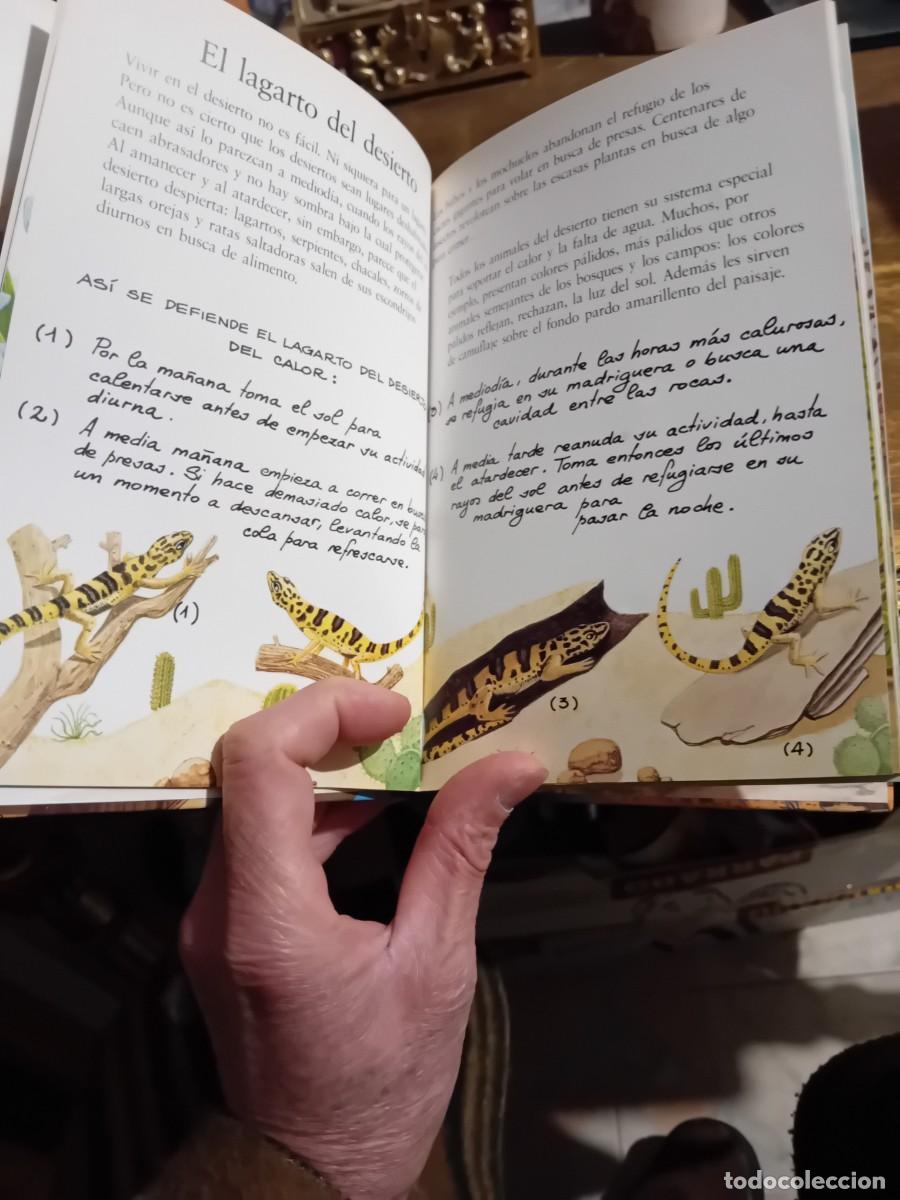 El lagarto del desierto
Vivir en el desierto no es fácil. Ni siquiera para un
Pero no es cierto que los desiertos sean lugares
Aunque así lo parezcan a mediodía, cuando los rayos
caen abrasadores y no hay sombra bajo la cual
Al amanecer y al atardecer, sin embargo, parece que el
desierto despierta: lagartos, serpientes, chacales, zorros de
largas orejas y ratas saltadoras salen de sus escondrijos
diurnos en busca de alimento.
ASÍ SE DEFIENDE EL LAGARTO DEL DESIERTO
DEL CALOR:
(1) Por la mañana toma el sol para
calentarse antes de empezar su actividad
diurna.
(2) A media mañana empieza a correr en busca
de presas. Si hace demasiado calor, se para
un momento a descansar, levantando la
cola para refrescarse.
(1)
búhos y los mochuelos abandonan el refugio de los
para volar en busca de presas. Centenares de
revolotean sobre las escasas plantas en busca de algo
Todos los animales del desierto tienen su sistema especial
para soportar el calor y la falta de agua. Muchos, por
ejemplo, presentan colores pálidos, más pálidos que otros
animales semejantes de los bosques y los campos: los colores
pálidos reflejan, rechazan, la luz del sol. Además les sirven
de camuflaje sobre el fondo pardo amarillento del paisaje.
A mediodía, durante las horas más calurosas,
se refugia en su madriguera o busca una
cavidad entre las rocas.
(4) A media tarde reanuda su actividad, hasta
el atardecer. Toma entonces los últimos
rayos del sol antes de refugiarse en su
madriguera para
pasar la noche.
(3)
(4)
todocoleccion